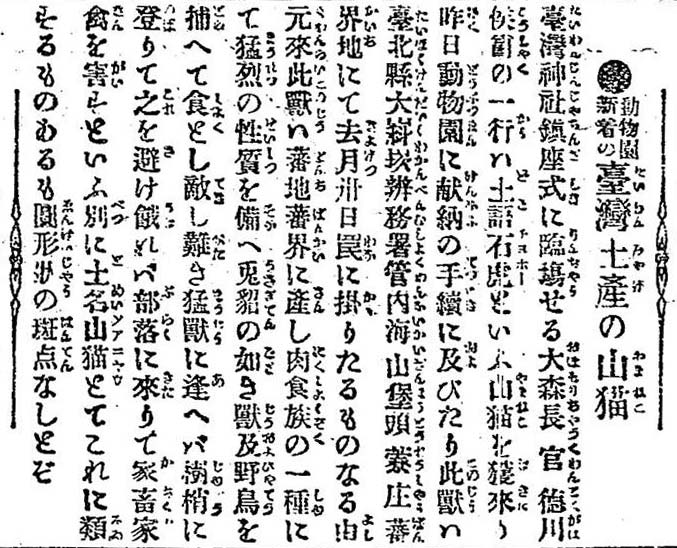 ●動物園新着の臺灣土產の山猫
臺灣神社鎮座式に臨塲せる大森長官德川
侯爵の一行ハ土語石虎といふ山猫を獲來り
昨日動物園に献納の手續に及びたり此獸ハ
臺北縣大嵙崁辨務署管內海山堡頭藔庄蕃
界地にて去月卅日罠に掛りたるものなる由
元來此獸ハ蕃地蕃界に產し肉食族の一種に
て猛烈の性質を備へ兎貂の如き獸及野鳥を
捕へて食とし敵し難き猛獸に逢へバ樹梢に
登りて之を避け餓れバ部落に來りて家畜家
禽を害すといふ別に土名山猫とてこれに類
するものあるも圓形狀の斑点なしとぞ